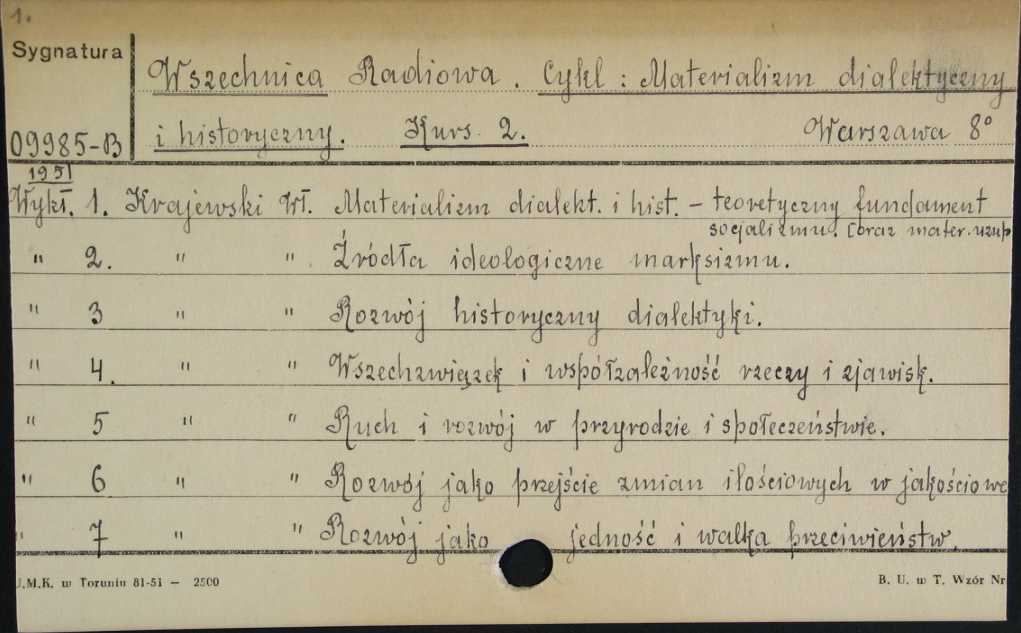 1.
Sygnatura
Wszechnica Radiowa. Cykl: Materializm dialektyczny
09985-B i historyczny. Kurs 2. Warszawa 8°
1951
Wykł. 1. Krajewski Wł. Materializm dialekt. i hist. – teoretyczny fundament
socjalizmu. [oraz mater. uzup
" 2. " " Źródła ideologiczne marksizmu.
" 3 " " Rozwój historyczny dialektyki.
" 4. " " Wszechzwiązek i współzależność rzeczy i zjawisk.
" 5 " " Ruch i rozwój w przyrodzie i społeczeństwie.
" 6 " " Rozwój jako przejście zmian ilościowych w jakościowe
" 7 " " Rozwój jako jedność i walka przeciwieństw.
U.M.K. w Toruniu 81-51 — 2500 B. U. w T. Wzór Nr